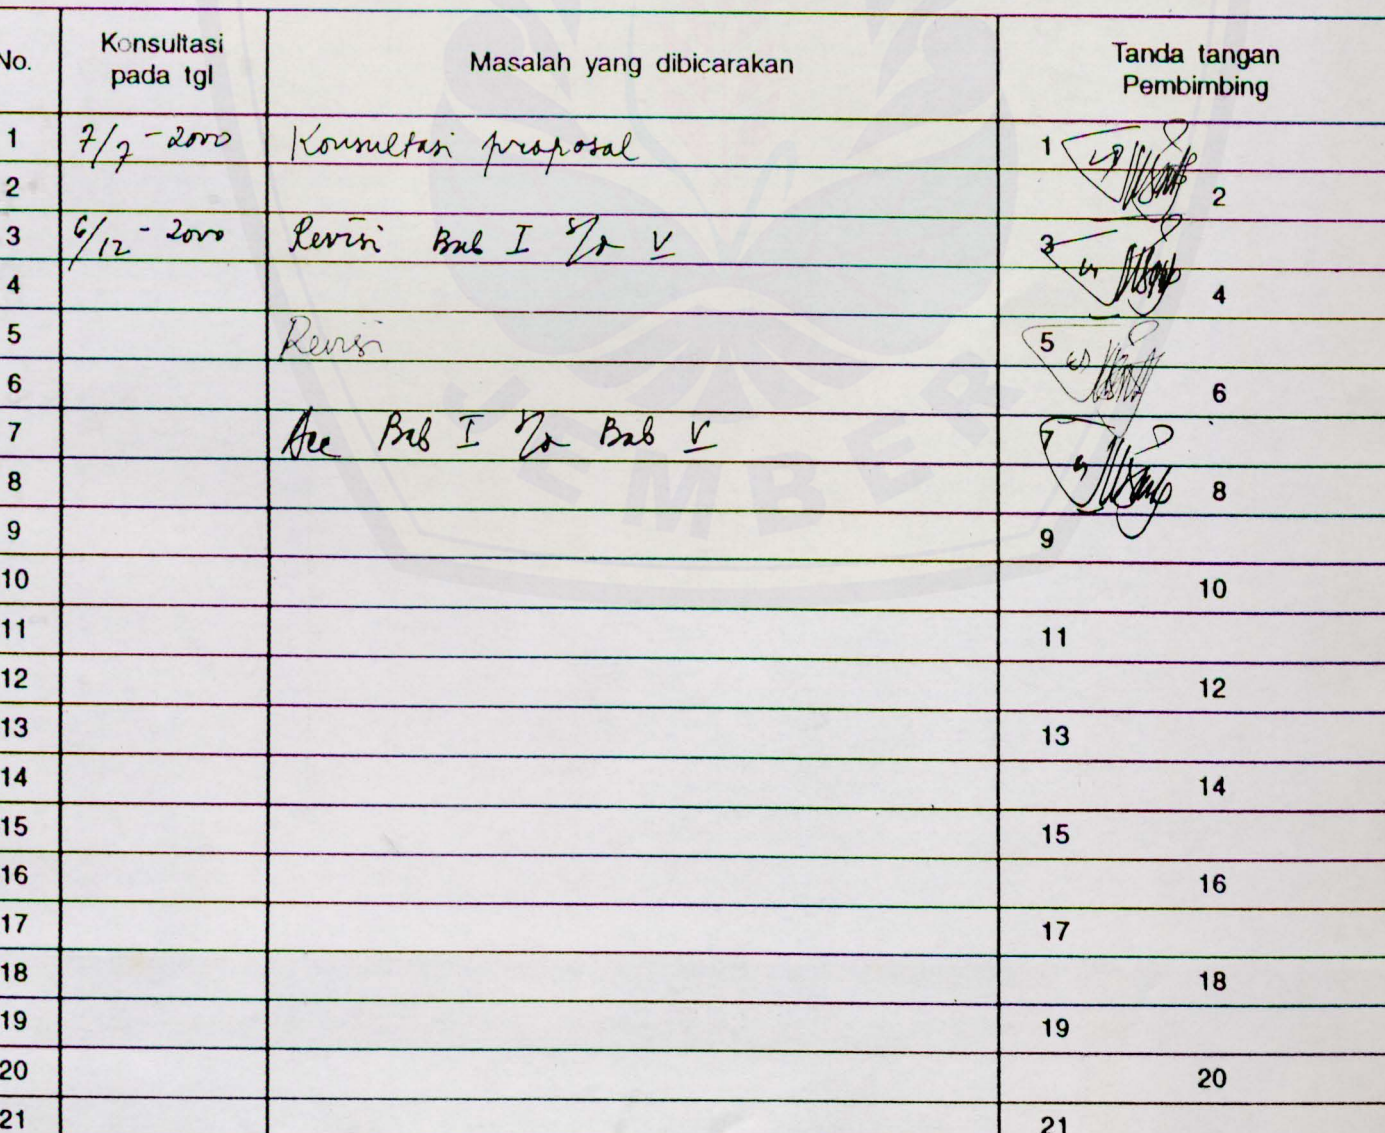 No. Konsultasi pada tgl Masalah yang dibicarakan Tanda tangan Pembimbing
1 7/7 - 2000 Konsultasi proposal 1
2 2
3 6/12 - 2000 Revisi Bab I s/d V 3
4 4
5 Revisi 5
6 6
7 Acc Bab I s/d Bab V 7
8 8
9 9
10 10
11 11
12 12
13 13
14 14
15 15
16 16
17 17
18 18
19 19
20 20
21 21
JEMBER